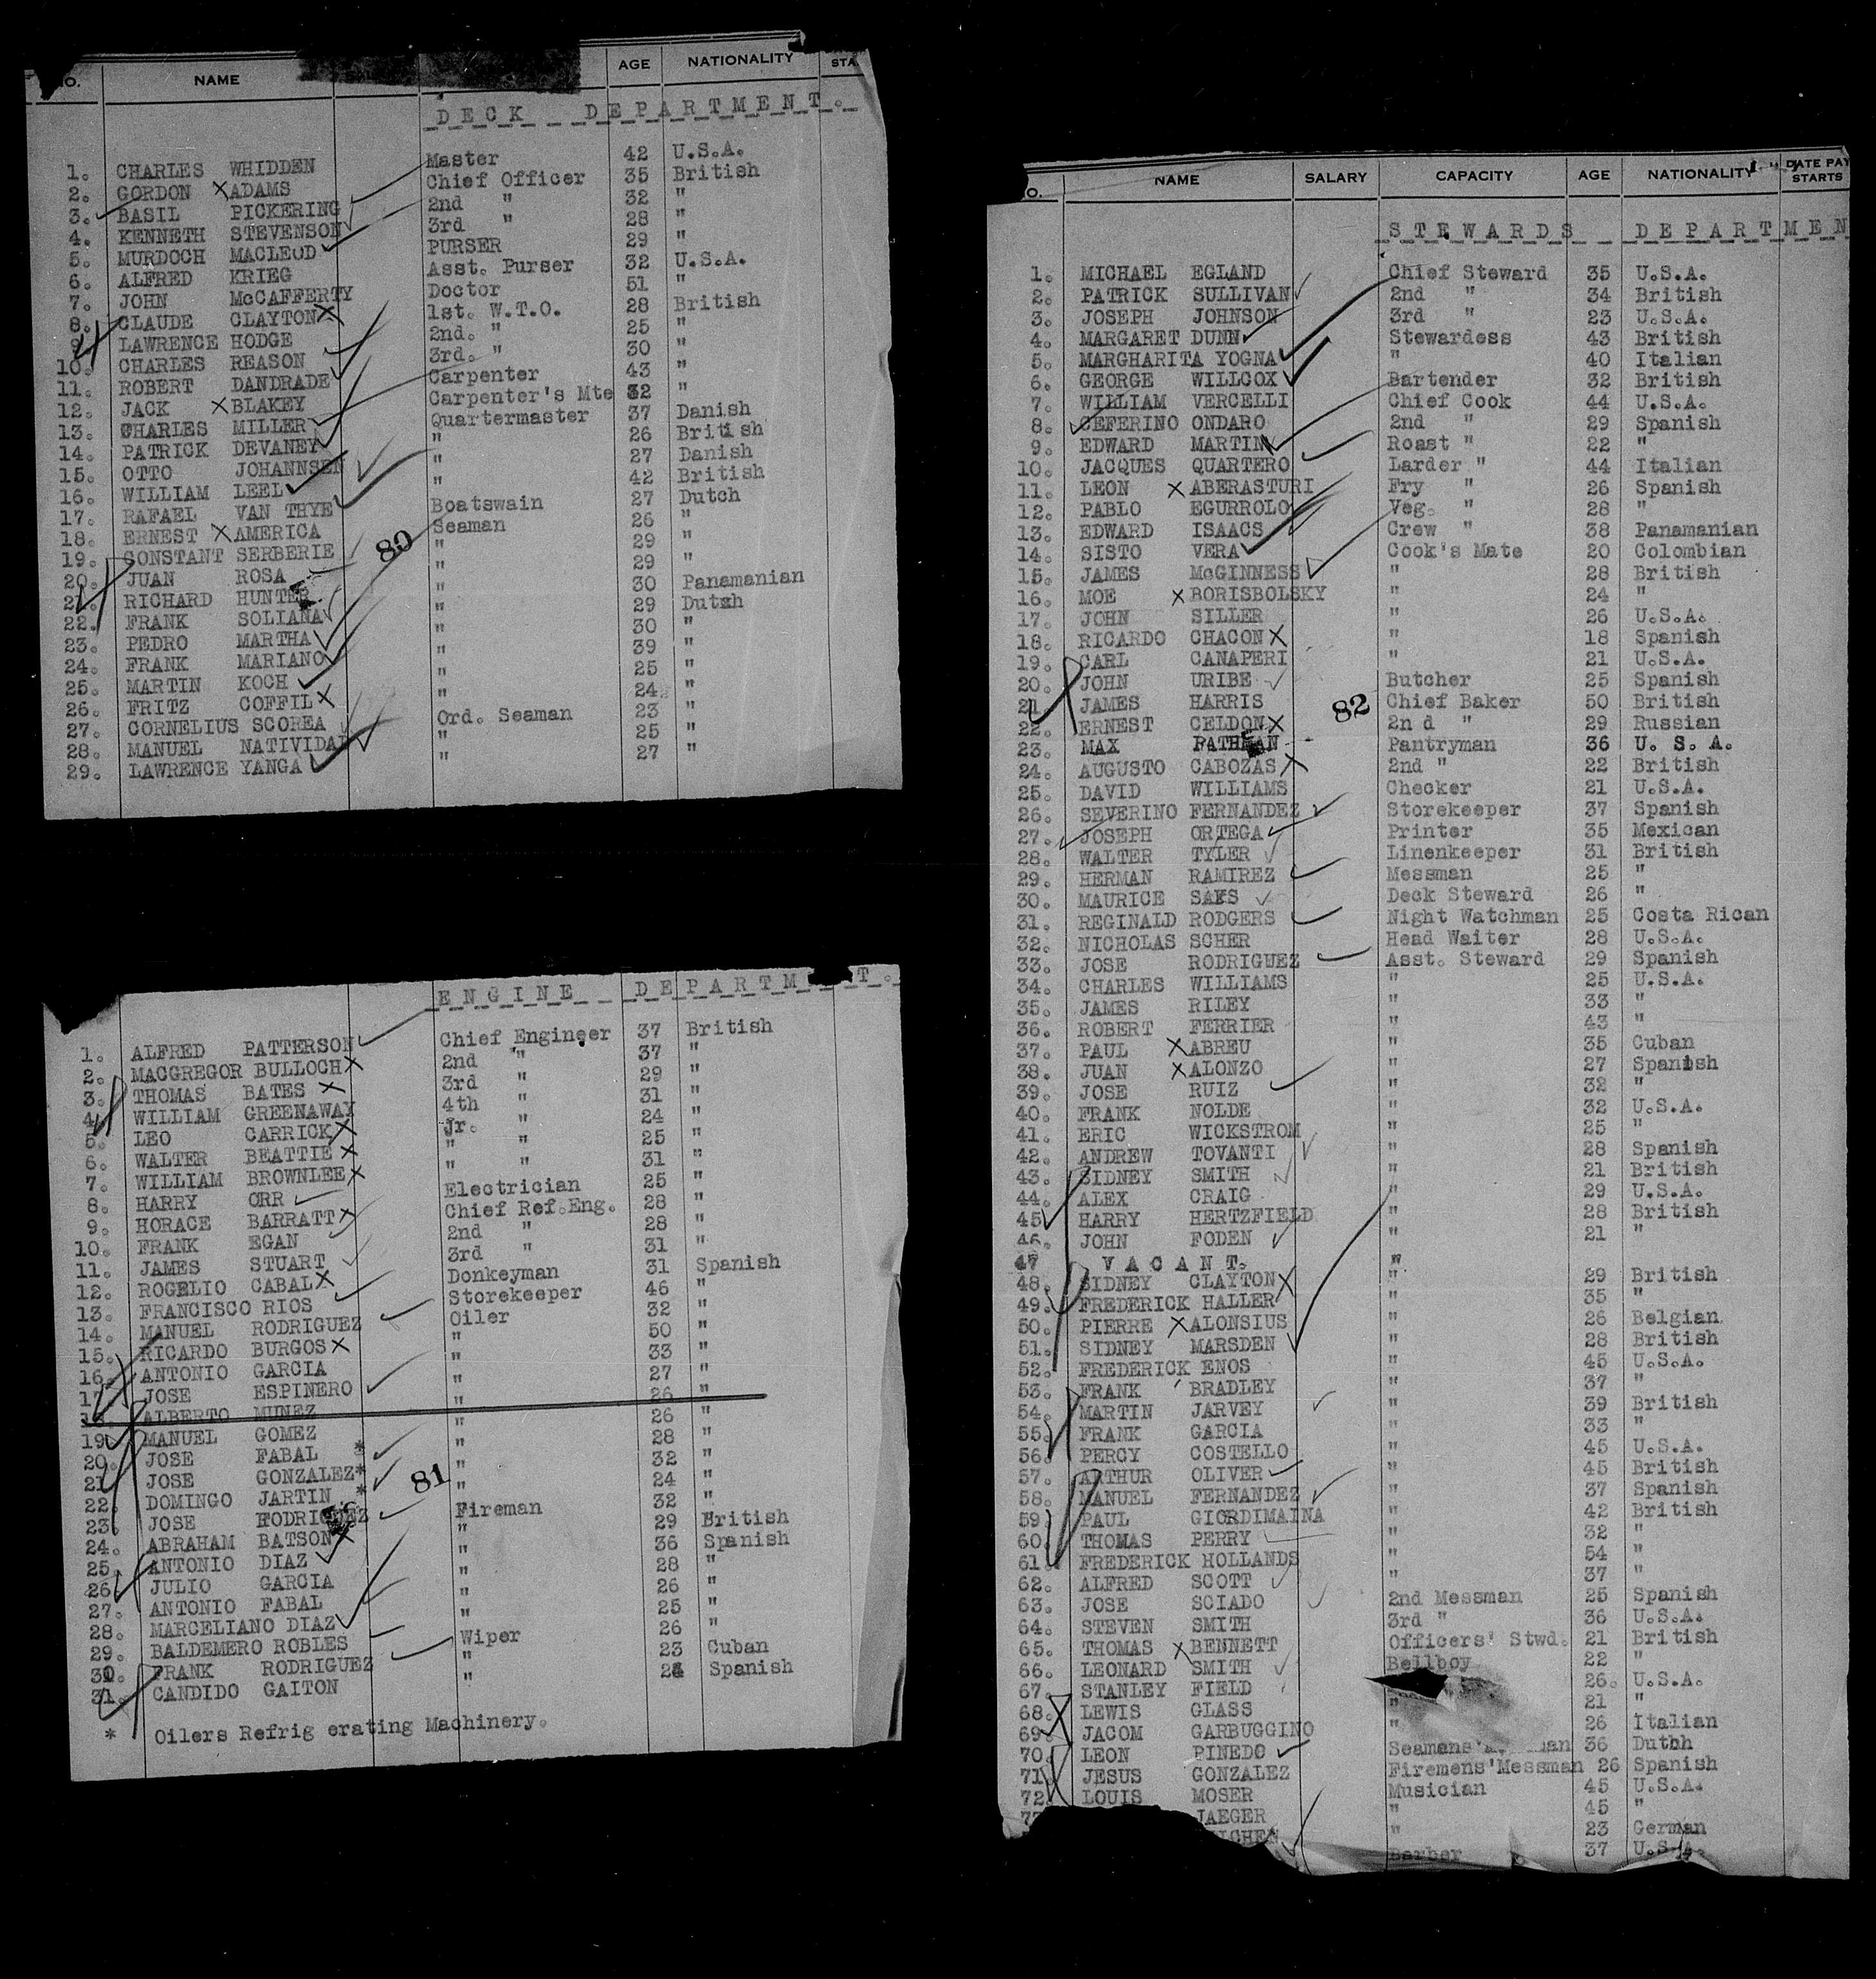 NO. NAME AGE NATIONALITY STA
DECK DEPARTMENT.
1. CHARLES WHIDDEN Master 42 U.S.A.
2. GORDON X ADAMS Chief Officer 35 British
3. BASIL PICKERING 2nd " 32 "
4. KENNETH STEVENSON 3rd " 28 "
5. MURDOCH MACLEOD PURSER 29 "
6. ALFRED KRIEG Asst. Purser 32 U.S.A.
7. JOHN McCAFFERTY Doctor 51 "
8. CLAUDE CLAYTON X 1st. W.T.O. 28 British
9. LAWRENCE HODGE 2nd. " 25 "
10. CHARLES REASON 3rd. " 30 "
11. ROBERT DANDRADE Carpenter 43 "
12. JACK X BLAKEY Carpenter's Mte 32 "
13. CHARLES MILLER Quartermaster 37 Danish
14. PATRICK DEVANEY " 26 British
15. OTTO JOHANNSEN " 27 Danish
16. WILLIAM LEEL " 42 British
17. RAFAEL VAN THYE Boatswain 27 Dutch
18. ERNEST X AMERICA Seaman 26 "
19. CONSTANT SERBERIE " 29 "
20. JUAN ROSA " 29 "
21. RICHARD HUNTER " 30 Panamanian
22. FRANK SOLIANA " 29 Dutch
23. PEDRO MARTHA " 30 "
24. FRANK MARIANO " 39 "
25. MARTIN KOCH " 25 "
26. FRITZ COFFIL X " 24 "
27. CORNELIUS SCOREA Ord. Seaman 23 "
28. MANUEL NATIVIDAD " 25 "
29. LAWRENCE YANGA " 27 "
80
ENGINE DEPARTM T.
1. ALFRED PATTERSON Chief Engineer 37 British
2. MACGREGOR BULLOCH X 2nd " 37 "
3. THOMAS BATES X 3rd " 29 "
4. WILLIAM GREENAWAY 4th " 31 "
5. LEO CARRICK X Jr. " 24 "
6. WALTER BEATTIE X " " 25 "
7. WILLIAM BROWNLEE X " " 31 "
8. HARRY ORR Electrician 25 "
9. HORACE BARRATT X Chief Ref.Eng. 28 "
10. FRANK EGAN 2nd " 28 "
11. JAMES STUART 3rd " 31 "
12. ROGELIO CABAL X Donkeyman 31 Spanish
13. FRANCISCO RIOS Storekeeper 46 "
14. MANUEL RODRIGUEZ Oiler 32 "
15. RICARDO BURGOS X " 50 "
16. ANTONIO GARCIA " 33 "
17. JOSE ESPINERO " 27 "
18. ALBERTO MUNEZ " 26 "
19. MANUEL GOMEZ " 26 "
20. JOSE FABAL * " 28 "
21. JOSE GONZALEZ * " 32 "
22. DOMINGO JARTIN * " 24 "
23. JOSE RODRIGUEZ Fireman 32 "
24. ABRAHAM BATSON X " 29 British
25. ANTONIO DIAZ " 36 Spanish
26. JULIO GARCIA " 28 "
27. ANTONIO FABAL " 26 "
28. MARCELIANO DIAZ " 25 "
29. BALDEMERO ROBLES Wiper 26 "
30. FRANK RODRIGUEZ " 23 Cuban
31. CANDIDO GAITON " 24 Spanish
81
* Oilers Refrig erating Machinery.
O. NAME SALARY CAPACITY AGE NATIONALITY DATE PAY STARTS
STEWARDS DEPARTMEN
1. MICHAEL EGLAND Chief Steward 35 U.S.A.
2. PATRICK SULLIVAN 2nd " 34 British
3. JOSEPH JOHNSON 3rd " 23 U.S.A.
4. MARGARET DUNN Stewardess 43 British
5. MARGHARITA YOGNA " 40 Italian
6. GEORGE WILLCOX Bartender 32 British
7. WILLIAM VERCELLI Chief Cook 44 U.S.A.
8. CEFERINO ONDARO 2nd " 29 Spanish
9. EDWARD MARTIN Roast " 22 "
10. JACQUES QUARTERO Larder " 44 Italian
11. LEON X ABERASTURI Fry " 26 Spanish
12. PABLO EGURROLO Veg. " 28 "
13. EDWARD ISAACS Crew " 38 Panamanian
14. SISTO VERA Cook's Mate 20 Colombian
15. JAMES McGINNESS " 28 British
16. MOE X BORISBOLSKY " 24 "
17. JOHN SILLER " 26 U.S.A.
18. RICARDO CHACON X " 18 Spanish
19. CARL CANAPERI " 21 U.S.A.
20. JOHN URIBE Butcher 25 Spanish
21. JAMES HARRIS Chief Baker 50 British
22. ERNEST CELDON X 2n d " 29 Russian
23. MAX PATHMAN Pantryman 36 U. S. A.
24. AUGUSTO CABOZAS X 2nd " 22 British
25. DAVID WILLIAMS Checker 21 U.S.A.
26. SEVERINO FERNANDEZ Storekeeper 37 Spanish
27. JOSEPH ORTEGA Printer 35 Mexican
28. WALTER TYLER Linenkeeper 31 British
29. HERMAN RAMIREZ Messman 25 "
30. MAURICE SAKS Deck Steward 26 "
31. REGINALD RODGERS Night Watchman 25 Costa Rican
32. NICHOLAS SCHER Head Waiter 28 U.S.A.
33. JOSE RODRIGUEZ Asst. Steward 29 Spanish
34. CHARLES WILLIAMS " 25 U.S.A.
35. JAMES RILEY " 33 "
36. ROBERT FERRIER " 43 "
37. PAUL X ABREU " 35 Cuban
38. JUAN X ALONZO " 27 Spanish
39. JOSE RUIZ " 32 "
40. FRANK NOLDE " 32 U.S.A.
41. ERIC WICKSTROM " 25 "
42. ANDREW TOVANTI " 28 Spanish
43. SIDNEY SMITH " 21 British
44. ALEX CRAIG " 29 U.S.A.
45. HARRY HERTZFIELD " 28 British
46. JOHN FODEN " 21 "
47 VACANT. "
48. SIDNEY CLAYTON X " 29 British
49. FREDERICK HALLER " 35 "
50. PIERRE X ALONSIUS " 26 Belgian
51. SIDNEY MARSDEN " 28 British
52. FREDERICK ENOS " 45 U.S.A.
53. FRANK BRADLEY " 37 "
54. MARTIN JARVEY " 39 British
55. FRANK GARCIA " 33 "
56. PERCY COSTELLO " 45 U.S.A.
57. ARTHUR OLIVER " 45 British
58. MANUEL FERNANDEZ " 37 Spanish
59. PAUL GIORDIMAINA " 42 British
60. THOMAS PERRY " 32 "
61. FREDERICK HOLLANDS " 54 "
62. ALFRED SCOTT " 37 "
63. JOSE SCIADO 2nd Messman 25 Spanish
64. STEVEN SMITH 3rd " 36 U.S.A.
65. THOMAS X BENNETT Officers' Stwd. 21 British
66. LEONARD SMITH Bellboy 22 "
67. STANLEY FIELD 26. U.S.A.
68. LEWIS GLASS " 21 "
69. JACOM GARBUGGINO " 26 Italian
70. LEON PINEDO Seamans' 36 Dutch
71. JESUS GONZALEZ Firemens'Messman 26 Spanish
72. LOUIS MOSER Musician 45 U.S.A.
JAEGER " 45 "
" 23 German
Barber 37 U.S.A.
82